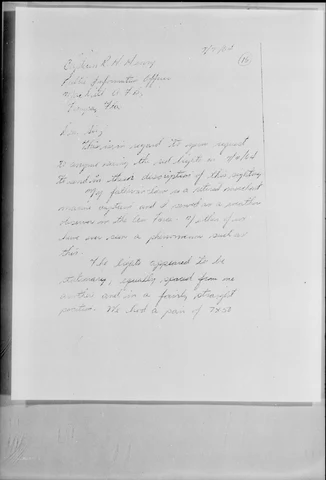 (16)
Public Information Officer
Tampa, Fla.
Dear Sir,
This is in regard to your request
to anyone seeing the red lights on
to send in their description of this sighting.
My father-in-law is a retired merchant
marine captain and I served as a weather
observer in the Air Force. Neither of us
have ever seen a phenomenon such as
this.
The lights appeared to be
stationary, equally spaced from one
another and in a fairly straight
position. We had a pair of 7x50